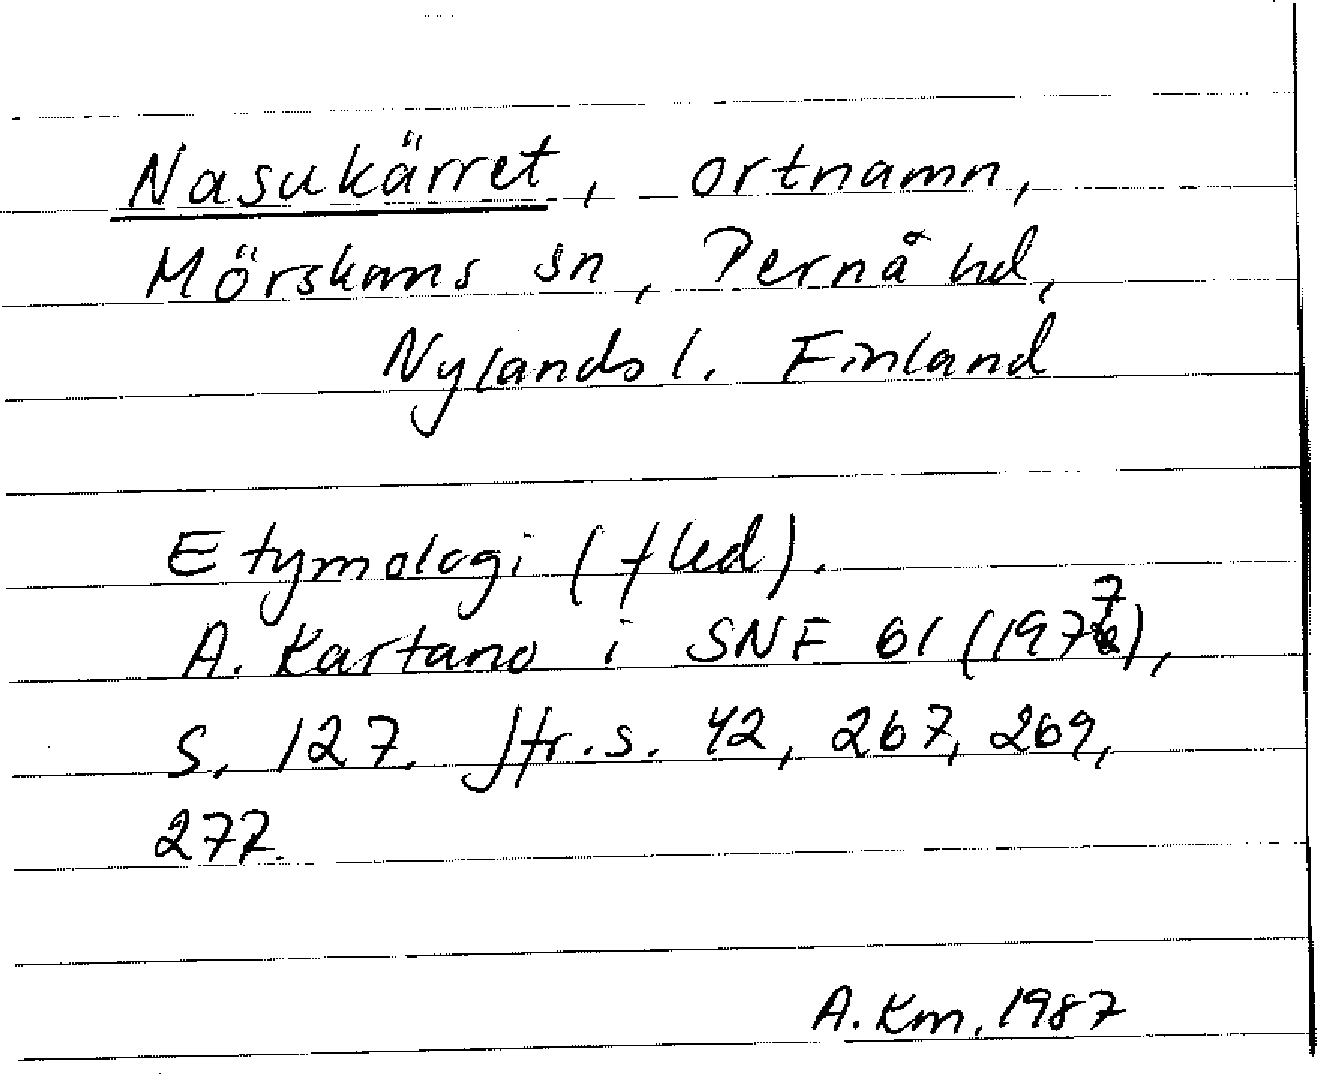 Nasukärret, ortnamn,
Mörskoms sn, Pernå hd,
Nylands l. Finland
Etymologi (fled).
A. Kartano i SNF 61 (1977),
s. 127. Jfr. s. 42, 267, 269,
277.
A. Km, 1987